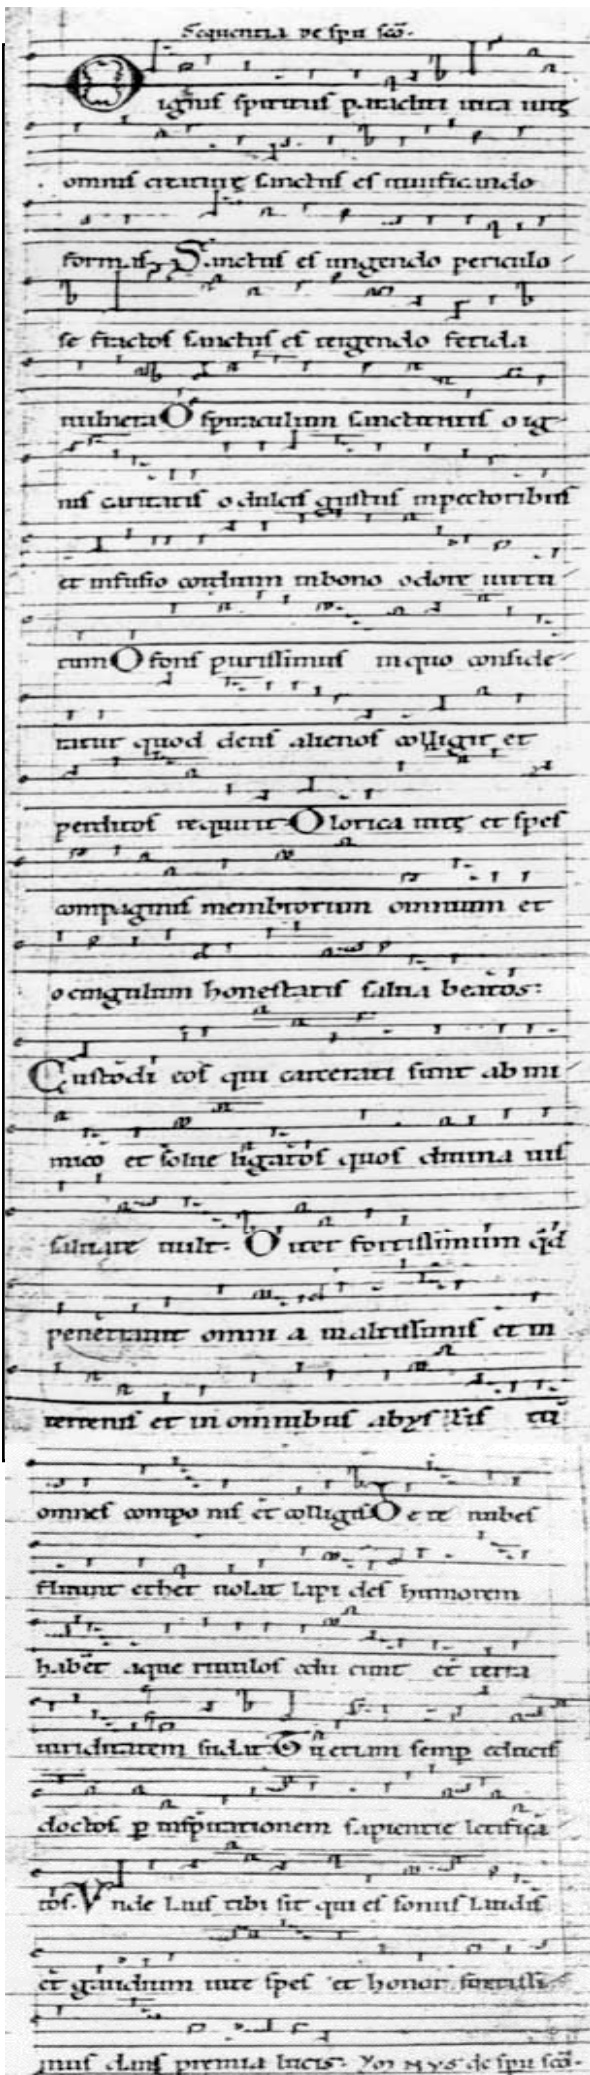 Sequentia de spū scō.
O ignis spiritus paracliti uita uitę
omnis creaturę sanctus es uiuificando
formas. Sanctus es ungendo periculo
se fractos sanctus es tergendo fetida
uulnera O spiraculum sanctitatis o ig
nis caritatis o dulcis gustus in pectoribus
et infusio cordium in bono odore uirtu
tum O fons purissimus in quo conside
ratur quod deus alienos colligit et
perditos requirit O lorica uitę et spes
compaginis membrorum omnium et
o cingulum honestatis salua beatos:
Custodi eos qui carcerati sunt ab ini
mico et solue ligatos quos diuina uis
saluare uult. O iter fortissimum qd̄
penetrauit omnia in altissimis et in
terrenis et in omnibus abyssis tu
omnes componis et colligis De te nubes
fluunt ether uolat lapides humorem
habent aque riuulos educunt et terra
uiriditatem sudat. Tu etiam semp educis
doctos p inspirationem sapientie letifica
tos. Vnde laus tibi sit qui es sonus laudis
et gaudium uite spes et honor fortissi
mus dans premia lucis. ymnus de spū scō.